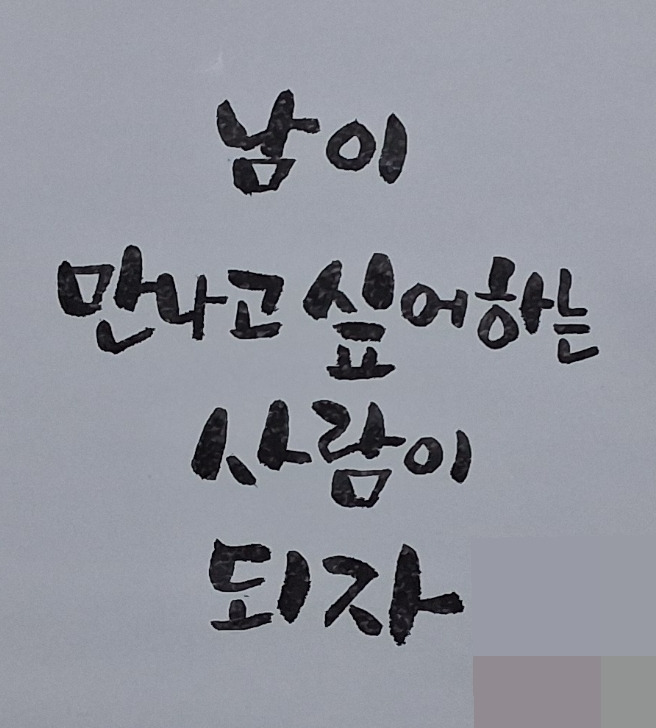 남이
만나고 싶어하는
사람이
되자